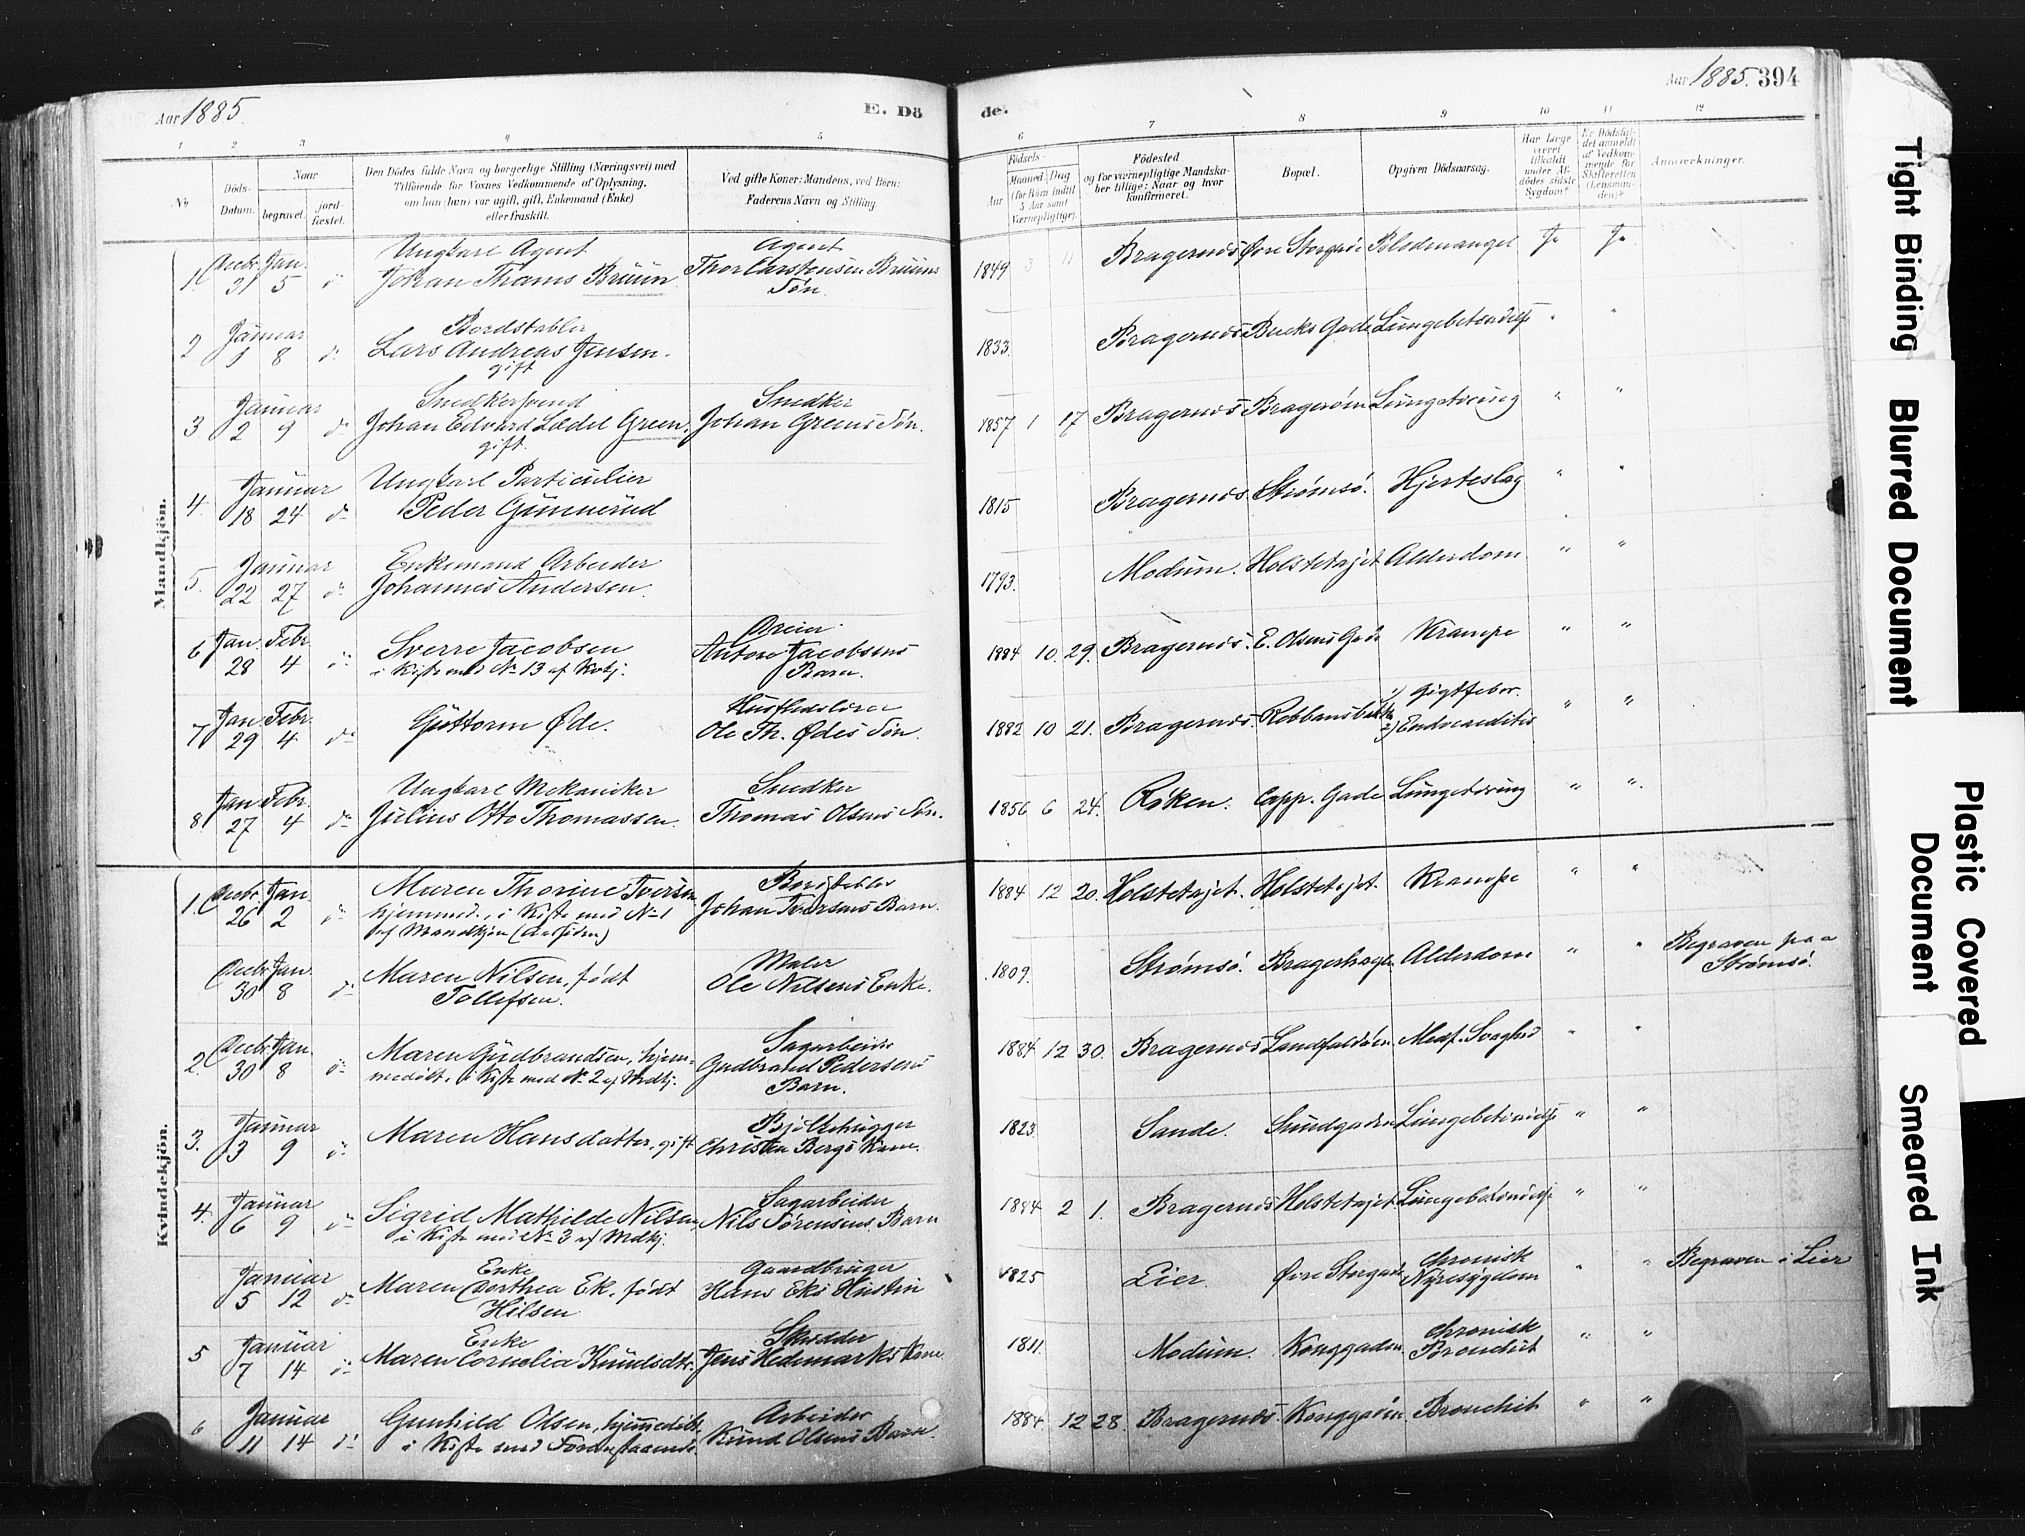 Aar 1885.
E. Dö
de.
Aar 1885. 394
1 2 3 4 5 6 7 8 9 10 11 12
No
Döds-Datum.
Naar
begravet.
jord-fæstet.
Den Dödes fulde Navn og borgerlige Stilling (Næringsvei) med
Tilföiende for Voxnes Vedkommende af Oplysning,
om han (hun) var ugift, gift, Enkemand (Enke)
eller fraskilt.
Ved gifte Koner: Mandens, ved Börn:
Faderens Navn og Stilling.
Födsels-
Aar
Maaned Dag
(for Börn indtil
5 Aar samt
Værnepligtige).
Födested
og for værnepligtige Mandska-
ber tillige: Naar og hvor
konfirmeret.
Bopæl.
Opgiven Dödsaarsag.
Har Læge
været
tilkaldt
under Af-
dødes sidste
Sygdom?
Er Dödsfal-
det anmeldt
af Vedkom-
mende for
Skifteretten
(Lensman-
den)?
Anmærkninger.
Mandkjön.
Decbr. Jan. Ungkarl Agent Agent
1. 31 5 do Johan Thams Bruun Thor Carstensen Bruuns Søn. 1849 3 11 Bragernæs Øvre Storgade Blodmangel Ja Ja
Januar Bordstabler
2 1 8 do Lars Andreas Jensen. 1833. Bragernæs Bucks Gade Lungebetændelse " "
gift
Januar Snedkersvend Snedker
3 2 9 do Johan Edvard Lædel Green, Johan Greens Søn. 1857 1 17 Bragernæs Bragerøen Lungetæring " "
gift.
Januar Ungkarl Particulier
4. 18 24 do Peder Gunnerud 1815 Bragernæs Strømsø. Hjerteslag " "
Januar Enkemand Arbeider
5. 22 27 do Johannes Andersen. 1793. Modum. Holstetajet Alderdom " "
Jan. Febr. Sverre Jacobsen Dreier
6 28 4 do i Kiste med No 13 af Kvkj. Antore Jacobsens Barn. 1884 10. 29. Bragernæs. E. Olsens Gade Krampe " "
Jan. Febr. Husflidslærer 1) Gigtfeber.
7 29 4 do Guttorm Øde. Ole Th. Ødes Søn. 1882 10 21. Bragernæs. 2) Endocarditis " "
Jan Febr. Ungkarl Mekaniker Snedker
8 27 4 do Julius Otto Thomassen. Thomas Olsens Søn. 1856 6 24. Røken. Capp. Gade Lungetæring " "
Kvindekjön.
Decbr. Jan. Maren Thorine Iversen Bordstabler
1. 26 2 do hjemmed., i Kiste med No 1 Johan Iversens Barn. 1884 12 20. Holstetajet. Holstetajet. Krampe " "
af Mandkjøn
Decbr. Jan. Maren Nilsen, født Maler
30 8 do Tollefsen. Ole Nilsens Enke. 1809. Strømsø. Alderdom " " Begraven paa Strømsø.
Decbr. Jan. Maren Gudbrandsen, hjem- Sagarbeider
2. 30 8 do medøbt, i Kiste med No 2 af Mdkj. Gudbrand Pedersens Barn. 1884 12 30. Bragernæs Landfaldøen Medf. Svaghed " "
Januar
3. 3 9 do Maren Hansdatter, gift Christen Bergs Kone. 1823. Sande. Sundgaden Lungebetændelse " "
Januar Sagarbeider
4. 6 9 do Sigrid Mathilde Nilsen Nils Sørensens Barn 1884 2 1. Bragernæs Holstetajet Lungebetændelse " "
i Kiste med No 3 af Mdkj.
Januar Enke Gaardbruger
5 12 do Maren Dorthea Ek, født Hans Eks Hustru 1825 Lier. Øvre Storgade chronisk Nyresygdom " " Begraven i Lier
Hilsen
Januar Enke Skrædder
5 7 14 do Maren Cornelia Knudsdtr. Jens Hedemarks Kone 1811. Modum. Konggaden chronisk Bronchit " "
Januar Gunhild Olsen, hjemmedøbt, Arbeider
6 11 14 do i Kiste med Foranstaaende. Knud Olsens Barn. 1884. 12 28. Bragernæs. Konggaden Bronchit " "
Tight Binding
Blurred Document
Plastic Covered
Document
Smeared Ink